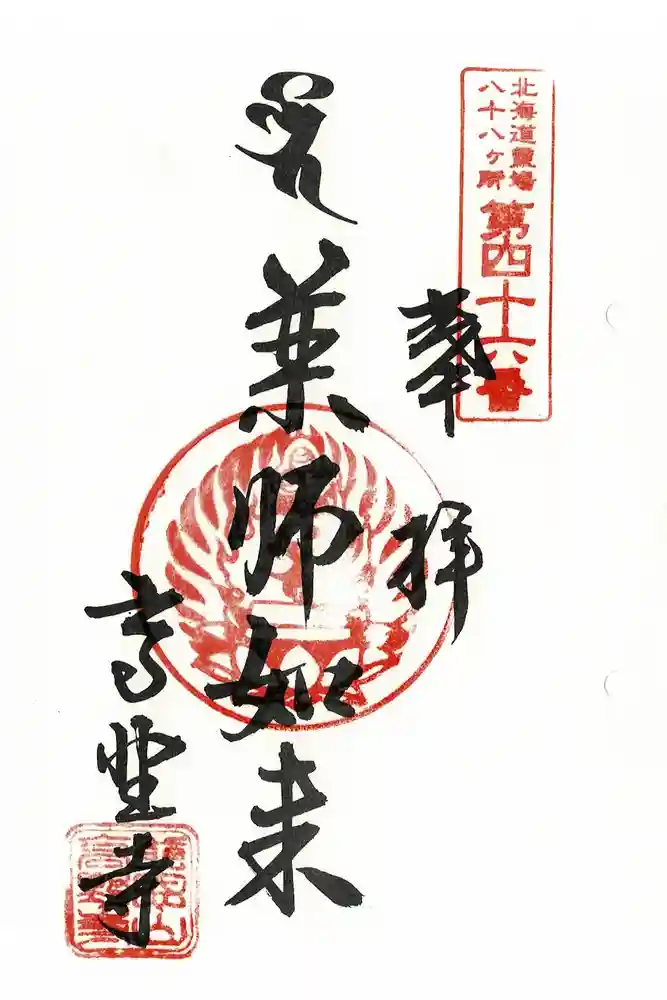 北海道霊場
八十八ヶ所
第四十六番
奉拝
薬師如来
高聖寺